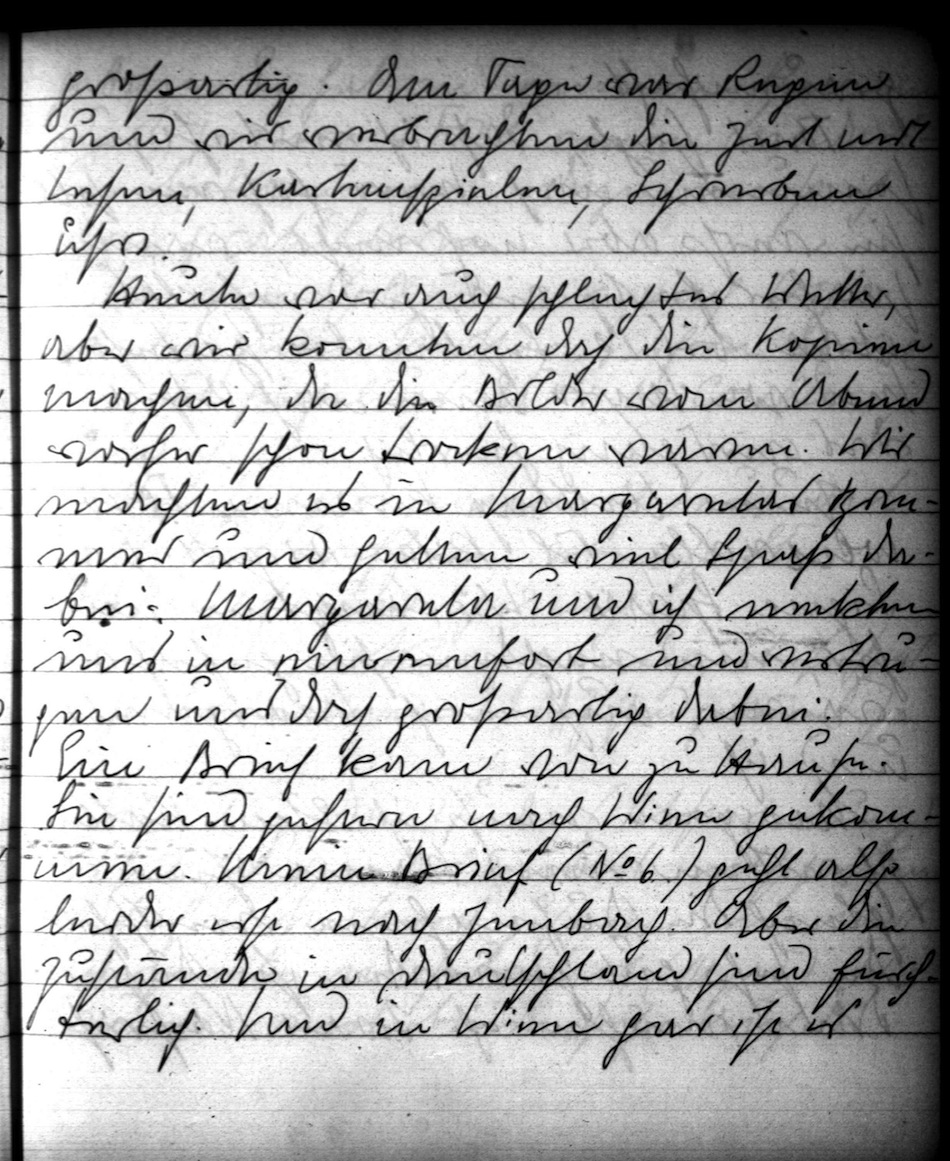 großartig. Am Tage war Regen
und wir verbrachten die Zeit mit
Lesen, Kartenspielen, Schreiben
usw.
Heute war auch schlechtes Wetter,
aber wir konnten doch die Kopien
machen, da die Bilder vom Abend
vorher schon trocken waren. Wir
machten es in Margaretas Kam-
mer und hatten viel Spaß da-
bei. Margareta und ich neckten
uns in einemfort und vertru-
gen uns doch großartig dabei.
Ein Brief kam von zu Hause.
Sie sind gestern nach Wien gekom-
men. Mein Brief (No 6.) geht also
leider erst nach Jenbach. Aber die
Zustände in Deutschland sind fürch-
terlich. Und in Wien gar ist es